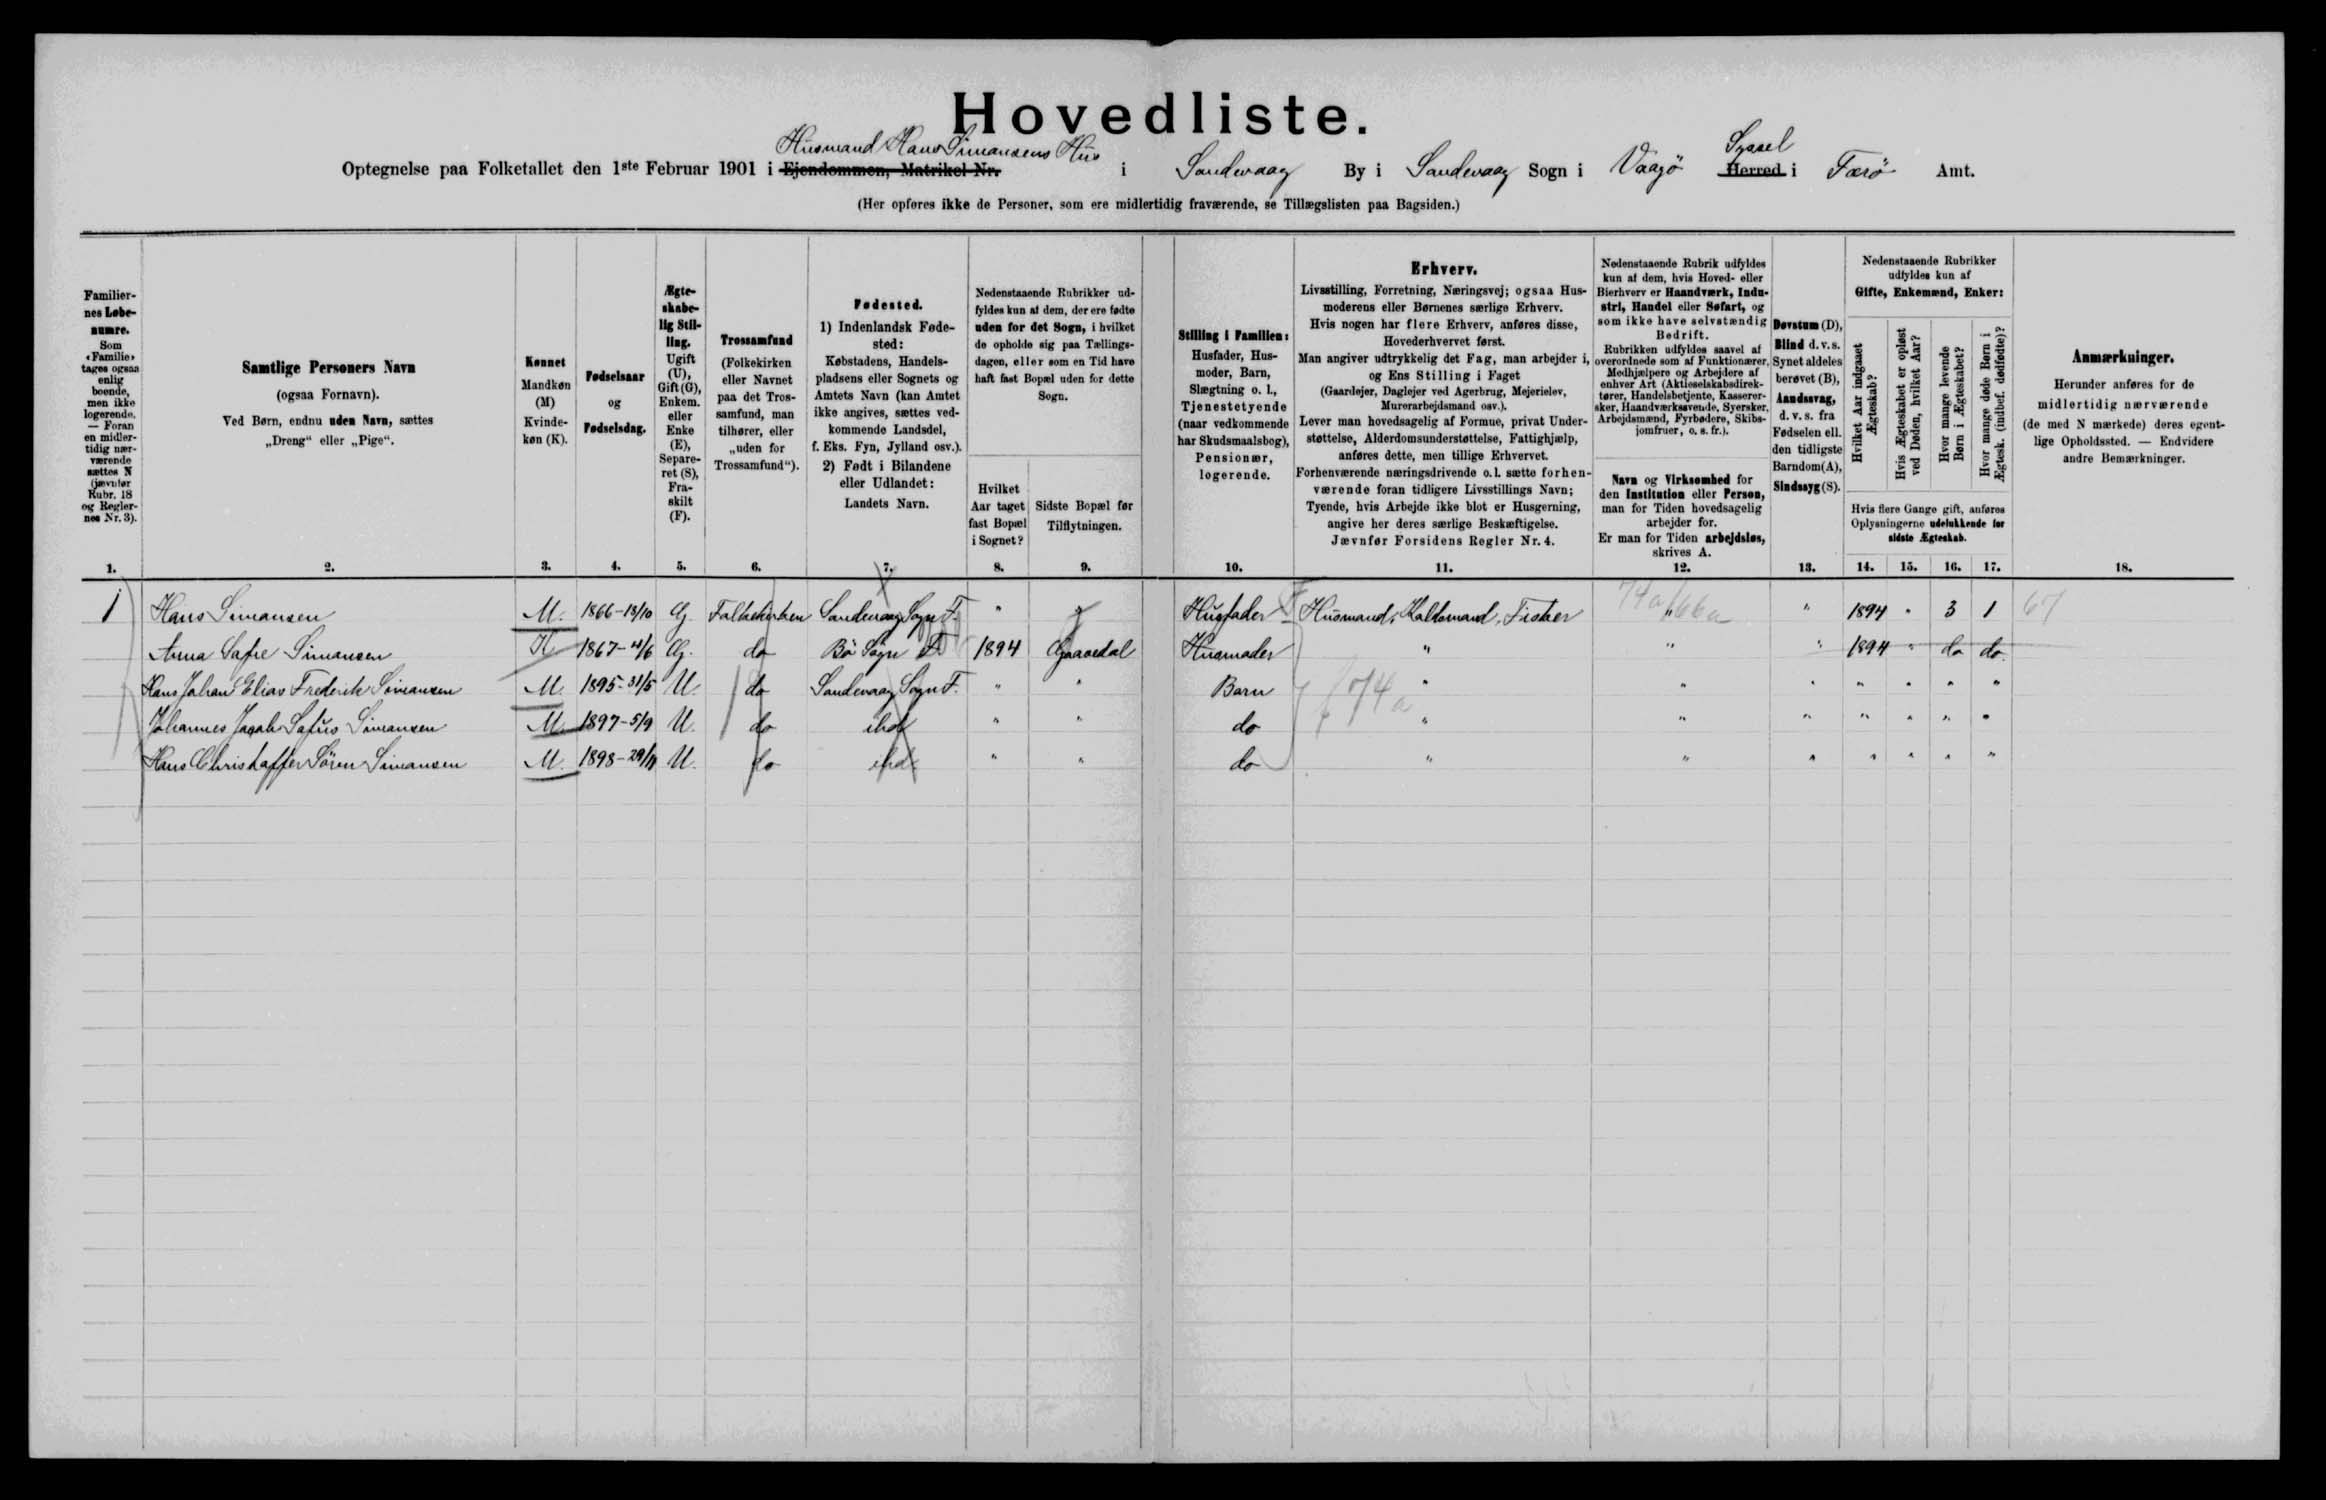 Hovedliste.
Husmand Hans Simonsens Hus
Syssel
Optegnelse paa Folketallet den 1ste Februar 1901 i Ejendommen, Matrikel Nr. i Sandevaag By i Sandevaag Sogn i Vaagö Herred i Færö Amt.
(Her opføres ikke de Personer, som ere midlertidig fraværende, se Tillægslisten paa Bagsiden.)
Familier-
nes Løbe-
numre.
Som
«Familie»
tages ogsaa
enlig
boende,
men ikke
logerende.
— Foran
en midler-
tidig nær-
værende
sættes N
(jævnfør
Rubr. 18
og Regler-
nes Nr. 3).
1.
Samtlige Personers Navn
(ogsaa Fornavn).
Ved Børn, endnu uden Navn, sættes
„Dreng“ eller „Pige“.
2.
Kønnet
Mandkøn
(M)
Kvinde-
køn (K).
3.
Fødselsaar
og
Fødselsdag.
4.
Ægte-
skabe-
lig Stil-
ling.
Ugift
(U),
Gift (G),
Enkem.
eller
Enke
(E),
Separe-
ret (S),
Fra-
skilt
(F).
5.
Trossamfund
(Folkekirken
eller Navnet
paa det Tros-
samfund, man
tilhører, eller
„uden for
Trossamfund“).
6.
Fødested.
1) Indenlandsk Føde-
sted:
Købstadens, Handels-
pladsens eller Sognets og
Amtets Navn (kan Amtet
ikke angives, sættes ved-
kommende Landsdel,
f. Eks. Fyn, Jylland osv.).
2) Født i Bilandene
eller Udlandet:
Landets Navn.
7.
Nedenstaaende Rubrikker ud-
fyldes kun af dem, der ere fødte
uden for det Sogn, i hvilket
de opholde sig paa Tællings-
dagen, eller som en Tid have
haft fast Bopæl uden for dette
Sogn.
Hvilket
Aar taget
fast Bopæl
i Sognet?
8.
Sidste Bopæl før
Tilflytningen.
9.
Stilling i Familien:
Husfader, Hus-
moder, Barn,
Slægtning o. l.,
Tjenestetyende
(naar vedkommende
har Skudsmaalsbog),
Pensionær,
logerende.
10.
Erhverv.
Livsstilling, Forretning, Næringsvej; ogsaa Hus-
moderens eller Børnenes særlige Erhverv.
Hvis nogen har flere Erhverv, anføres disse,
Hovederhvervet først.
Man angiver udtrykkelig det Fag, man arbejder i,
og Ens Stilling i Faget
(Gaardejer, Daglejer ved Agerbrug, Mejerielev,
Murerarbejdsmand osv.).
Lever man hovedsagelig af Formue, privat Under-
støttelse, Alderdomsunderstøttelse, Fattighjælp,
anføres dette, men tillige Erhvervet.
Forhenværende næringsdrivende o. l. sætte forhen-
værende foran tidligere Livsstillings Navn;
Tyende, hvis Arbejde ikke blot er Husgerning,
angive her deres særlige Beskæftigelse.
Jævnfør Forsidens Regler Nr. 4.
11.
Nedenstaaende Rubrik udfyldes
kun af dem, hvis Hoved- eller
Bierhverv er Haandværk, Indu-
stri, Handel eller Søfart, og
som ikke have selvstændig
Bedrift.
Rubrikken udfyldes saavel af
overordnede som af Funktionærer,
Medhjælpere og Arbejdere af
enhver Art (Aktieselskabsdirek-
tører, Handelsbetjente, Kasserer-
sker, Haandværkssvende, Syersker,
Arbejdsmænd, Fyrbødere, Skibs-
jomfruer, o. s. fr.).
Navn og Virksomhed for
den Institution eller Person,
man for Tiden hovedsagelig
arbejder for.
Er man for Tiden arbejdsløs,
skrives A.
12.
Døvstum (D),
Blind d. v. s.
Synet aldeles
berøvet (B),
Aandssvag,
d. v. s. fra
Fødselen ell.
den tidligste
Barndom (A),
Sindssyg (S).
13.
Nedenstaaende Rubrikker
udfyldes kun af
Gifte, Enkemænd, Enker:
Hvilket Aar indgaaet
Ægteskab?
Hvis Ægteskabet er opløst
ved Døden, hvilket Aar?
Hvor mange levende
Børn i Ægteskabet?
Hvor mange døde Børn i
Ægtesk. (indbef. dødfødte)?
Hvis flere Gange gift, anføres
Oplysningerne udelukkende for
sidste Ægteskab.
14. 15. 16. 17.
Anmærkninger.
Herunder anføres for de
midlertidig nærværende
(de med N mærkede) deres egent-
lige Opholdssted. — Endvidere
andre Bemærkninger.
18.
1 Hans Simonsen M. 1866-13/10 G. Folkekirken Sandevaag Sogn F. " " Husfader Husmand, Fisker 74a/66a " " 1894 " 3 1 67
Anna Sofie Simonsen K 1867- /6 G. do Bö Sogn F. 1894 Gaasedal Husmoder " " " 1894 " do do.
Hans Johan Elias Frederik Simonsen M. 1895-31/5 U. do Sandevaag Sogn F. " " Barn " " " " " " " 74a
Johannes Jacob Sofus Simonsen M. 1897-5/9 U. do ibd " " do " " " " " " "
Hans Christoffer Sören Simonsen M. 1898-29/11 U. do ibd. " " do " " " " " " "